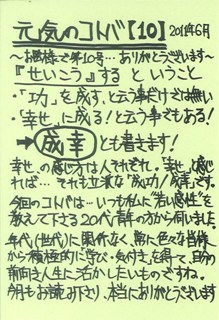 元気のコトバ【10】 2011年6月
～お陰様で第10号…ありがとうございます～
『せいこう』するということ
・「功」を成す、と言う事だけでは無い
・「幸せ」に成る！と言う事でもある！
→成幸とも書きます！
幸せの感じ方は人それぞれ。「幸せ」と感じ
れば…それも立派な「成功！成幸」です。
今回のコトバは…いつも私に"若い感性"を
教えて下さる20代青年の方から伺いました。
年代（世代）に関係なく、常に色々な皆様
から積極的に学び・気付きを得て、自分の
前向き人生に活かしたいものですね。
今月もお読み下さり、本当にありがとうございます